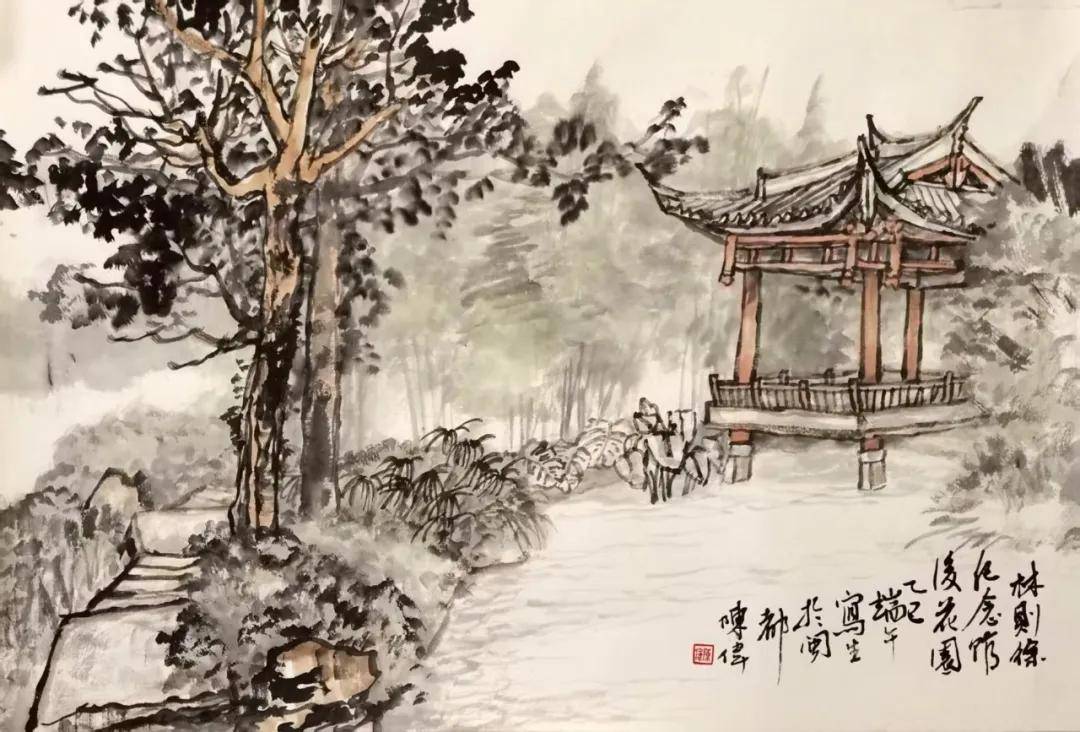 林則徐
纪念馆
後花園
乙巳
端午
寫生
於閩
都
陳偉